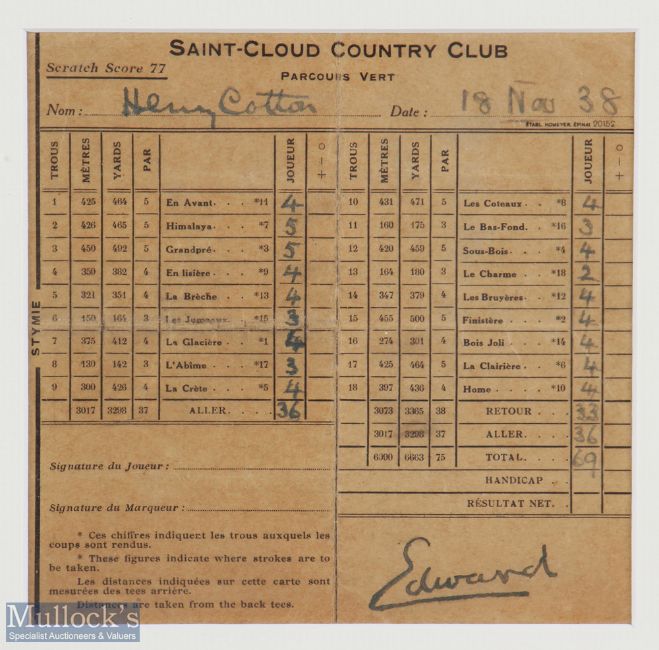 SAINT-CLOUD COUNTRY CLUB
Scratch Score 77
PARCOURS VERT
Nom : Henry Cotton Date : 18 Nov 38
ÉTABL. HOMEYER, ÉPINAL 20152
TROUS MÈTRES YARDS PAR JOUEUR + - o TROUS MÈTRES YARDS PAR JOUEUR + - o
1 425 464 5 En Avant. . . . *11 4 10 431 471 5 Les Coteaux. . . *8 4
2 426 465 5 Himalaya. . . . *7 5 11 160 175 3 Le Bas-Fond. . . *16 3
3 450 492 5 Grandpré. . . . *3 5 12 420 459 5 Sous-Bois. . . . *4 4
4 350 382 4 En lisière . . . *9 4 13 164 180 3 Le Charme . . . *18 2
5 321 351 4 La Brèche . . . *13 4 14 347 379 4 Les Bruyères. . . *12 4
6 150 164 3 Les Jumeaux. . *15 3 15 455 500 5 Finistère . . . *2 4
7 375 412 4 La Glacière . . . *1 4 16 274 301 4 Bois Joli . . . . *14 4
8 130 142 3 L'Abîme. . . . *17 3 17 425 464 5 La Clairière . . . *6 4
9 390 426 4 La Crète. . . . *5 4 18 397 436 4 Home . . . . *10 4
3017 3298 37 ALLER. . . . . 36 3073 3365 38 RETOUR . . . . 33
3017 3298 37 ALLER. . . . . 36
6090 6663 75 TOTAL. . . . . 69
HANDICAP . .
RÉSULTAT NET. .
STYMIE
Signature du Joueur :
Signature du Marqueur :
* Ces chiffres indiquent les trous auxquels les
coups sont rendus.
* These figures indicate where strokes are to
be taken.
Les distances indiquées sur cette carte sont
mesurées des tees arrière.
Distances are taken from the back tees.
Edward
Mullock's
Specialist Auctioneers & Valuers